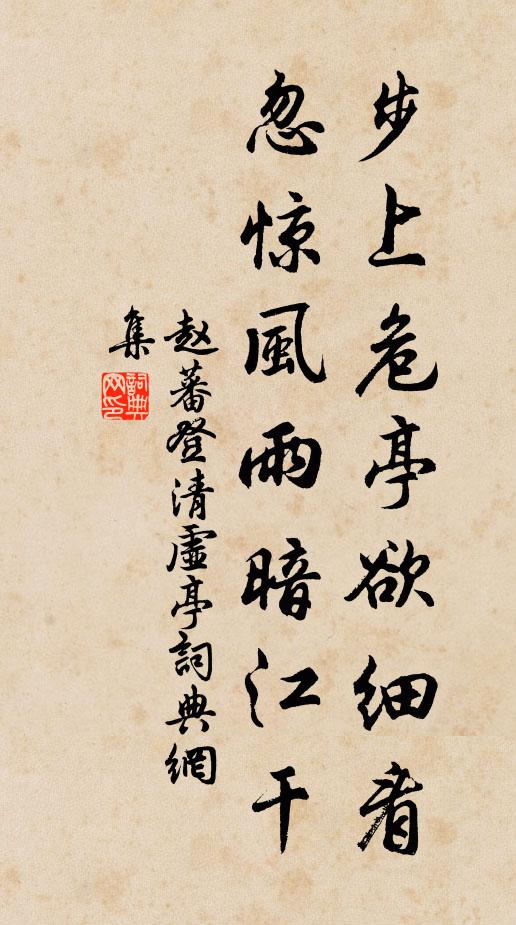 步上危亭欲细看
忽惊風雨暗江干
赵蕃登清虚亭詞典網
集
詞典
网印